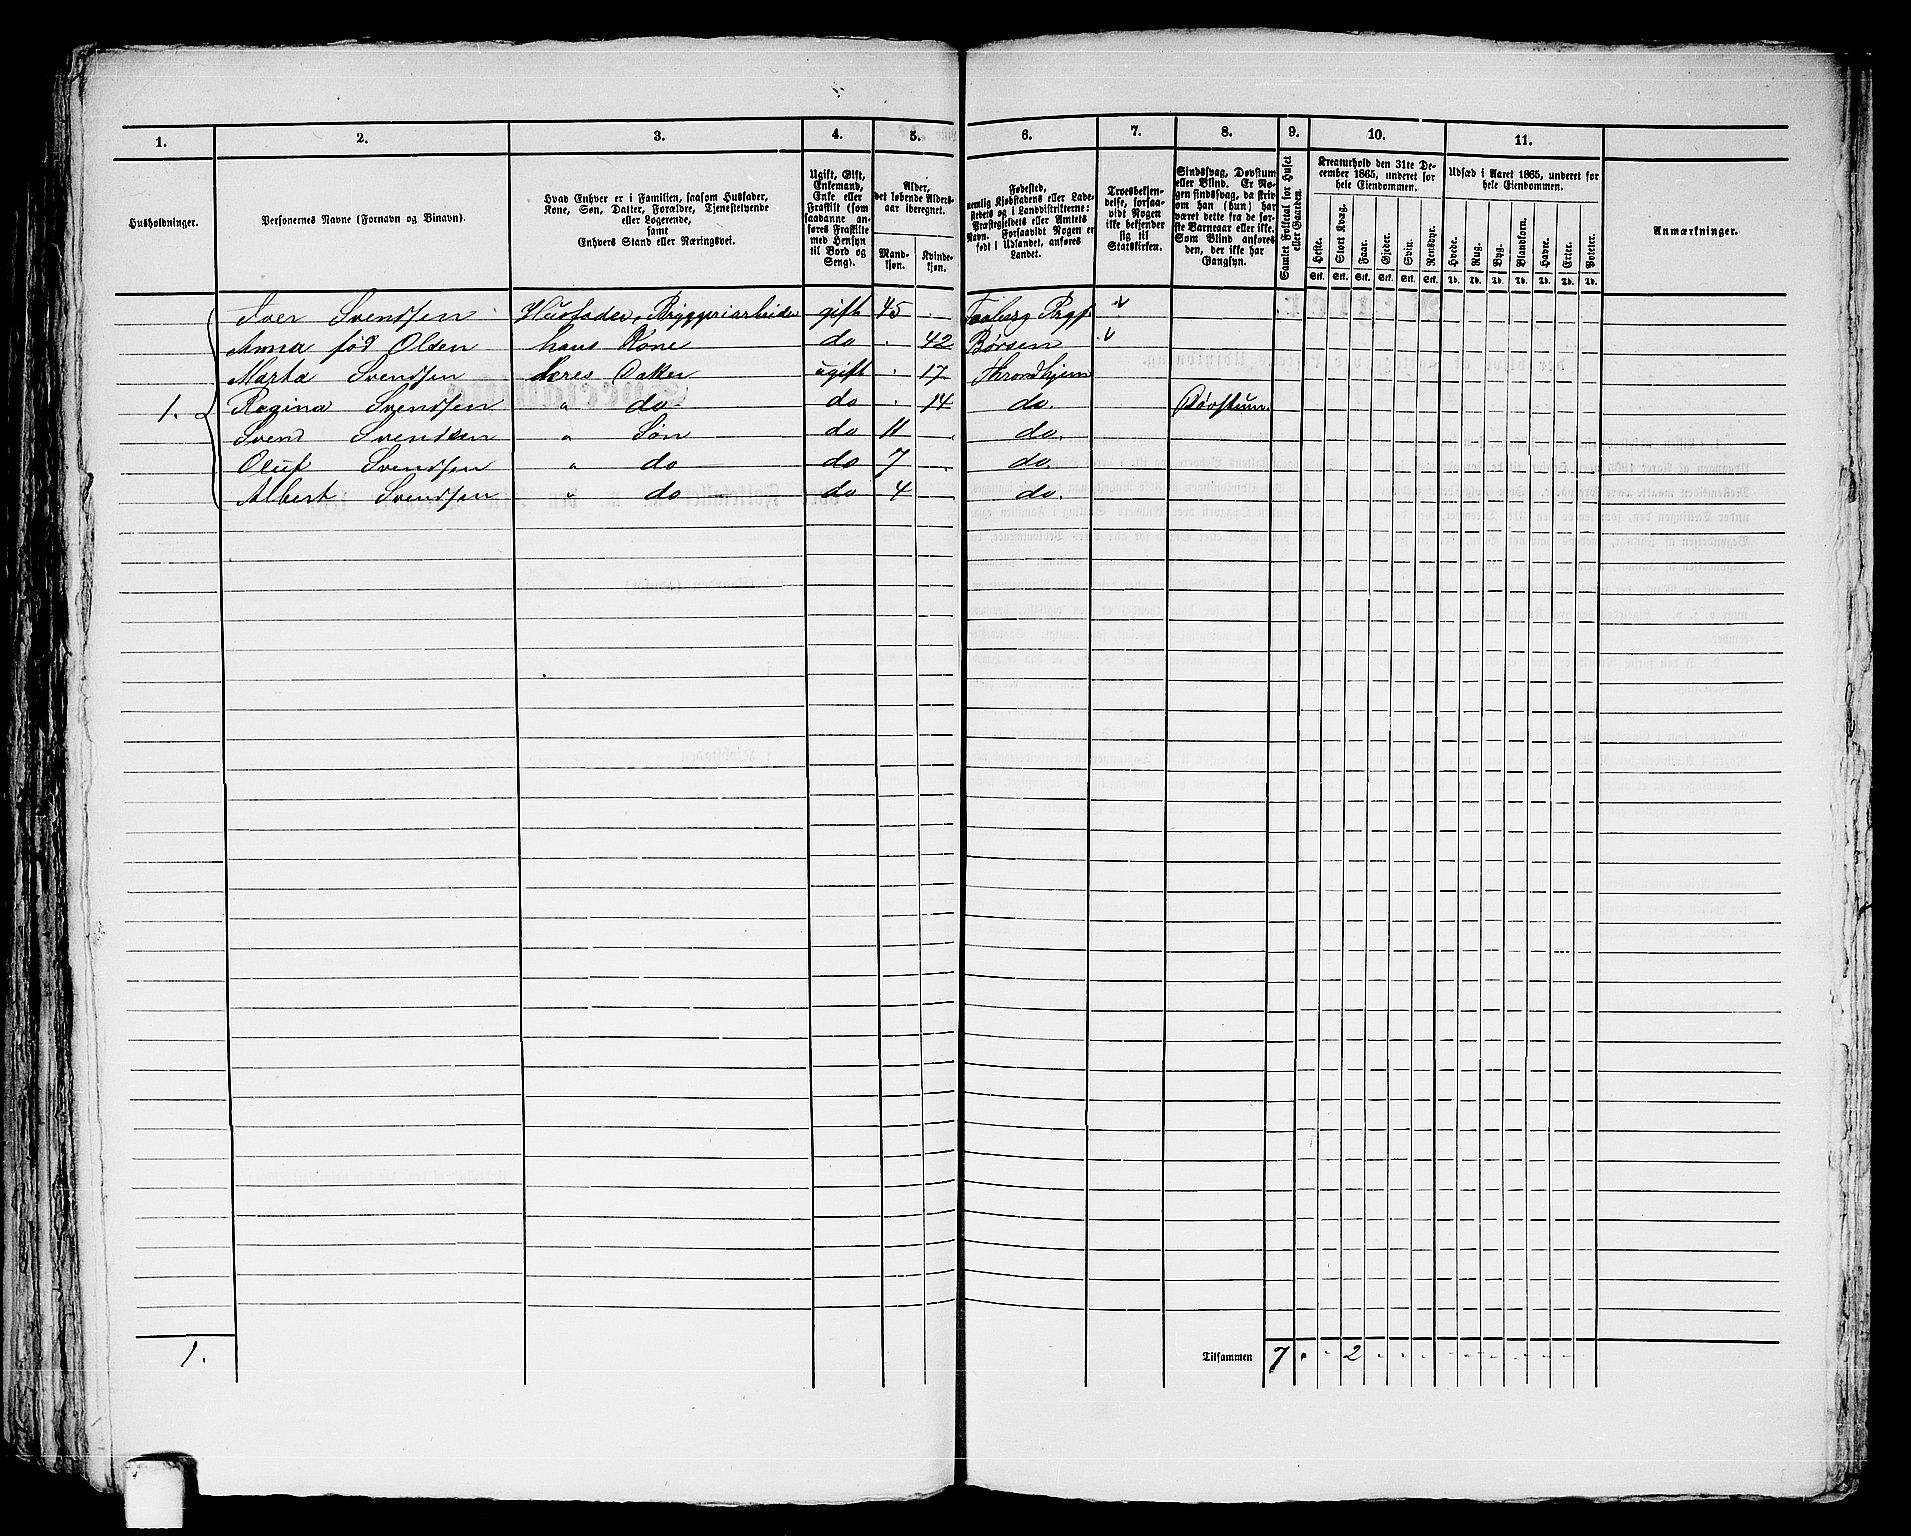 1. 2. 3. 4. 5. 6. 7. 8. 9. 10. 11.
Husholdninger.
Personernes Navne (Fornavn og Binavn).
Hvad Enhver er i Familien, saasom Husfader,
Kone, Søn, Datter, Forældre, Tjenestetyende
eller Logerende,
samt
Enhvers Stand eller Næringsvei.
Ugift, Gift,
Enkemand,
Enke eller
Fraskilt (som
saadanne an-
føres Fraskilte
med Hensyn
til Bord og
Seng).
Alder,
det løbende Alders-
aar iberegnet.
Mand-
kjøn.
Kvinde-
kjøn.
Fødested,
nemlig Kjøbstadens eller Lade-
stedets og i Landdistrikterne:
Præstegjeldets eller Amtets
Navn. Forsaavidt Nogen er
født i Udlandet, anføres
Landet.
Troesbekjen-
delse, forsaa-
vidt Nogen
ikke bekjender
sig til
Statskirken.
Sindssvag, Døvstum
eller Blind. Er No-
gen sindssvag, da skriv
om han (hun) har
været dette fra de før-
ste Barneaar eller ikke.
Som Blind anføres
den, der ikke har
Gangsyn.
Samlet Folketal for Huset
eller Gaarden.
Kreaturhold den 31te De-
cember 1865, underet for
hele Eiendommen.
Heste. Stort Kvæg. Faar. Gjeder. Svin. Rensdyr.
Stk. Stk. Stk. Stk. Stk. Stk.
Udsæd i Aaret 1865, underet for
hele Eiendommen.
Hvede. Rug. Byg. Blandkorn. Havre. Erter. Poteter.
Td. Td. Td. Td. Td. Td. Td.
Anmærkninger.
Iver Svendsen Husfader, Bryggeriarbeider gift 45 . Faaberg Prgj. "
Anna fød Olsen hans Kone do . 42 Børsen "
Marta Svendsen deres Datter ugift . 17 Throndhjem
1. Regina Svendsen " do do . 14 do. Døvstum.
Svend Svendsen " Søn do 11 . do.
Oluf Svendsen " do do 7 . do.
Albert Svendsen " do do 4 . do.
1. Tilsammen 7 . . 2 . . . . . . . . . .